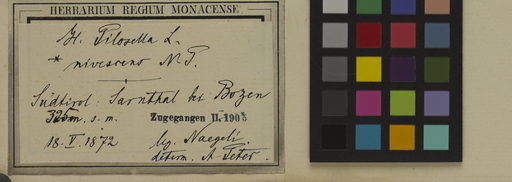 HERBARIUM REGIUM MONACENSE.
H. Pilosella L.
* nivescens N. P.
Südtirol: Sarnthal bei Bozen
325m, s. m. Zugegangen II. 1908
18. V. 1872 leg. Naegeli.
determ. A Peter.